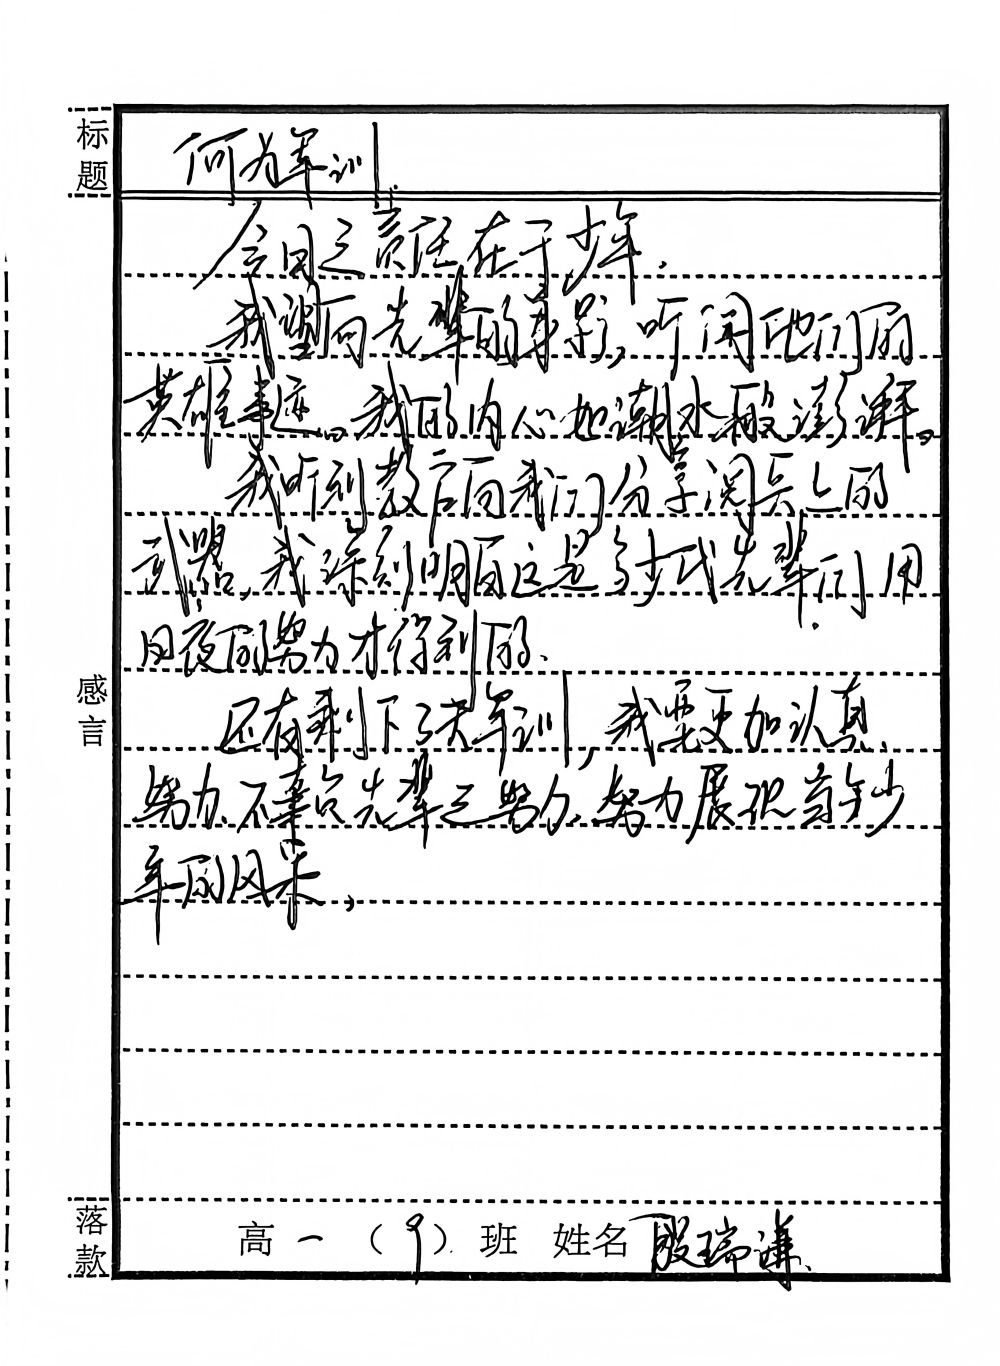 标题
何为军训
今日之责任在于少年.
我望向先辈的身影,听闻他们的
英雄事迹。我的内心如潮水般澎湃。
我听到教官向我们分享阅兵上的
武器,我深刻明白这是多少代先辈们用
日夜的努力才得到的.
感言
还有剩下3天军训,我要更加认真、
努力.不辜负先辈之努力.努力展现当今少
年的风采,
落款
高一(9)班 姓名 殷瑞谦